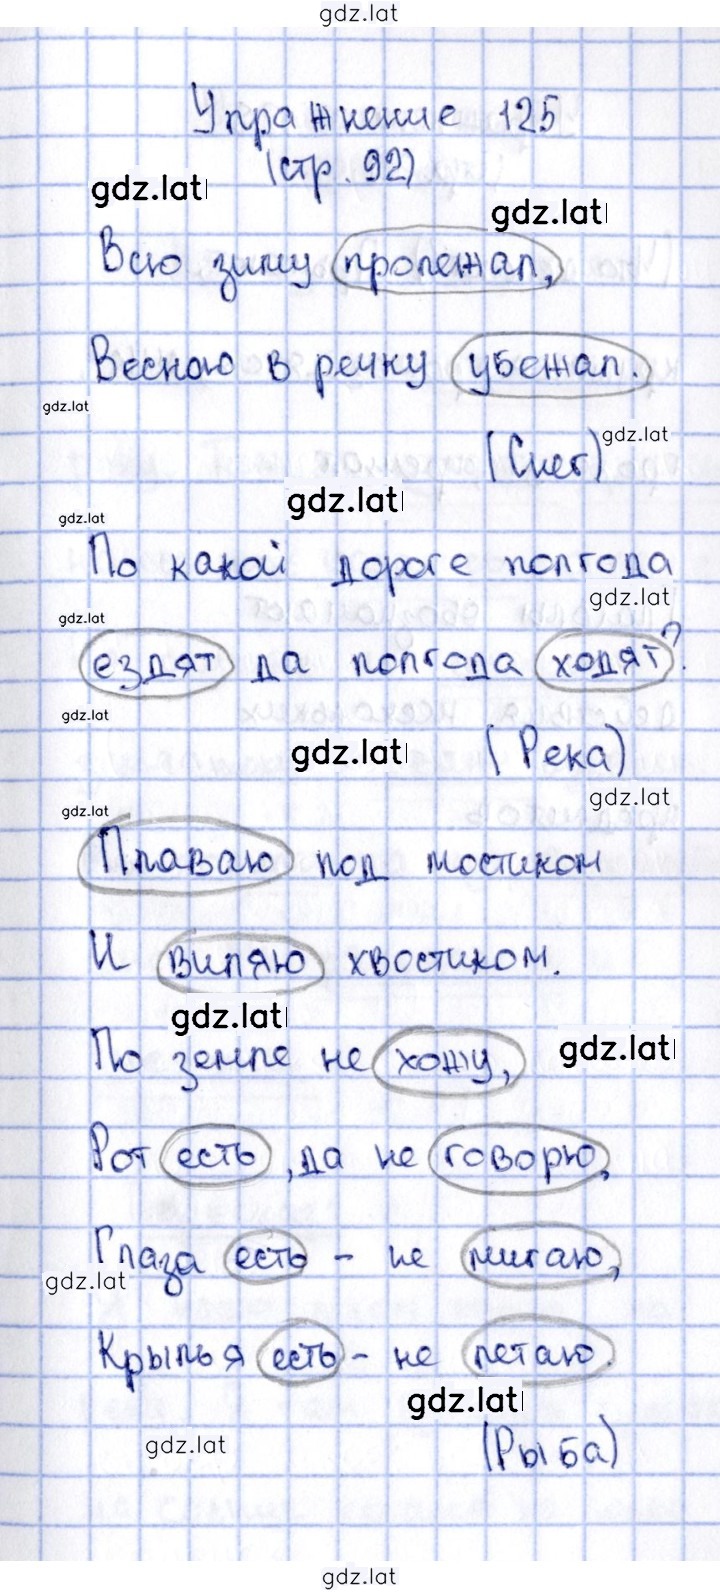 gdz.lat
Упражнение 125
(стр. 92)
gdz.lat
gdz.lat
Всю зиму пролежал,
Весною в речку убежал.
gdz.lat
gdz.lat
(Снег)
gdz.lat
gdz.lat
По какой дороге полгода
gdz.lat
gdz.lat
ездят да полгода ходят?
gdz.lat
gdz.lat
(Река)
gdz.lat
gdz.lat
Плаваю под мостиком
И виляю хвостиком.
gdz.lat
По земле не хожу,
gdz.lat
Рот есть, да не говорю,
Глаза есть - не мигаю,
gdz.lat
Крылья есть - не летаю.
gdz.lat
gdz.lat
(Рыба)
gdz.lat